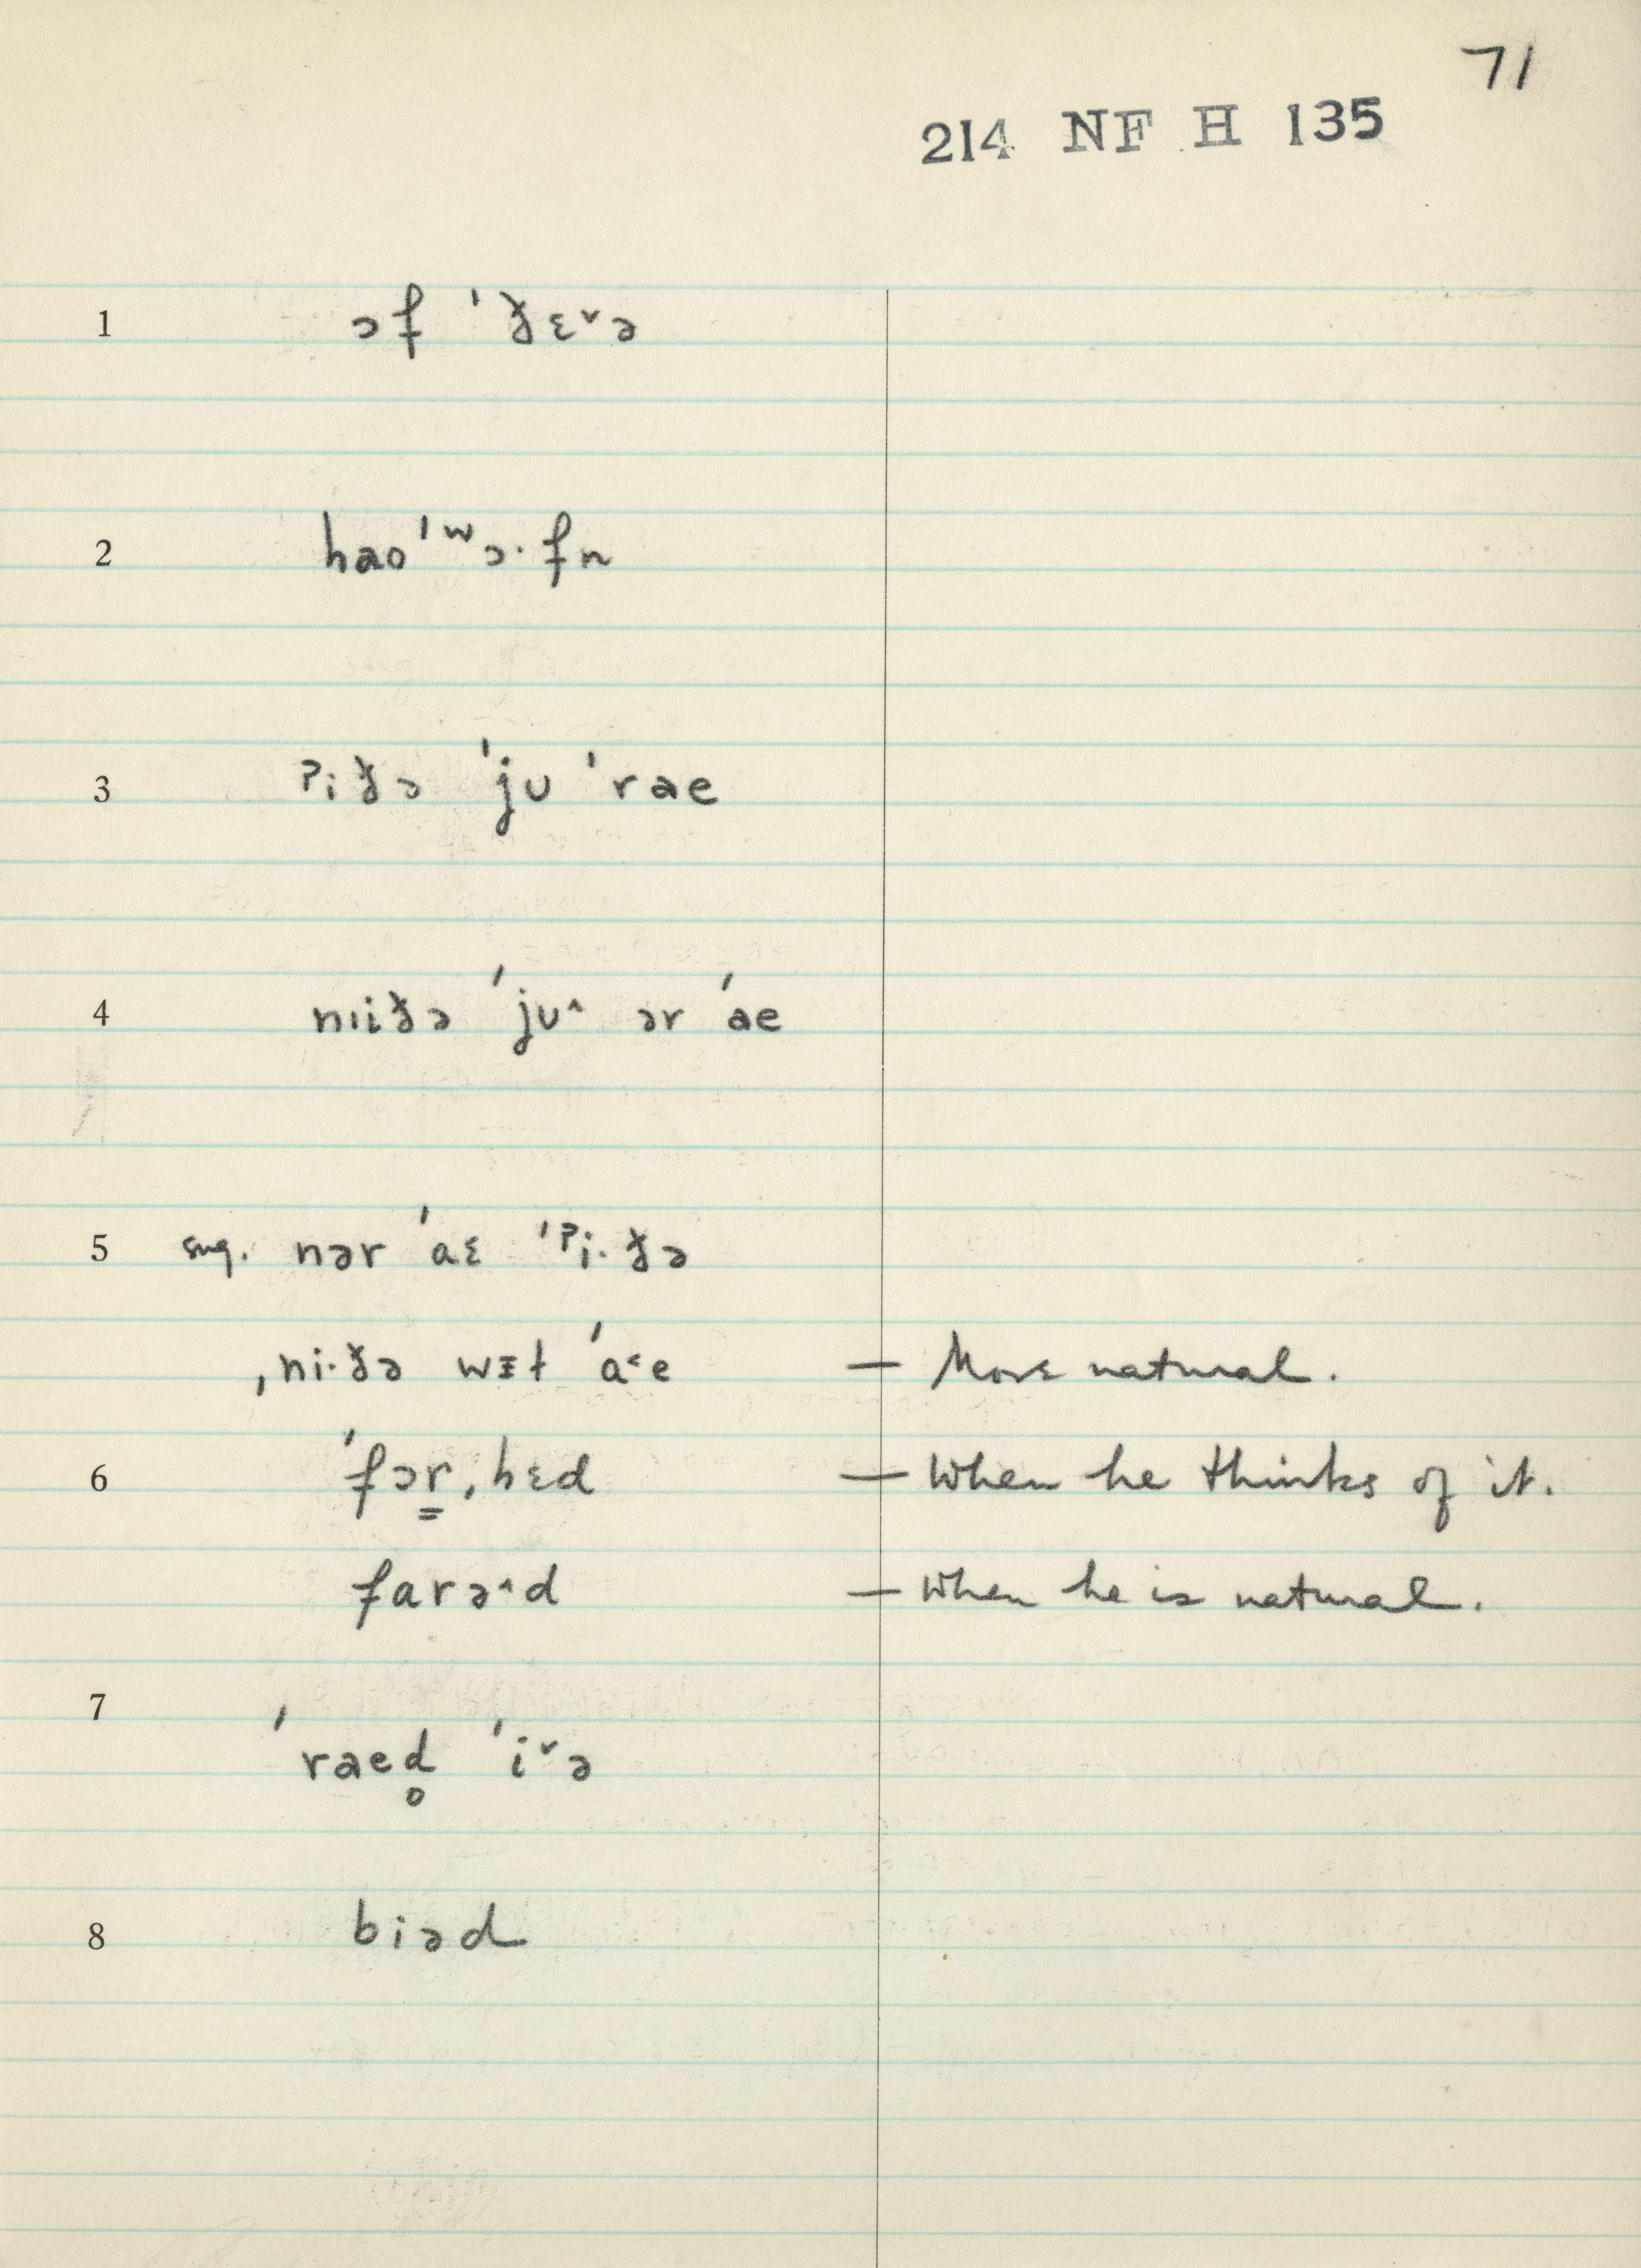 71
214 NF H 135
1 ɔf ˈðɛ˅ə
2 hao ˈʷɔ·fn
3 ˀiðə ˈjʊ ˈrae
4 nɪiðə ˈjʊ˄ ər ˈae
5 sug. nər ˈaɛ ˈˀi·ðə
ˌni·ðə wɪ̵ɫ ˈa˂e — More natural.
6 ˈfɔr̳ˌhɛd — When he thinks of it.
farə˄d — When he is natural.
7
ˈraed̥ ˈi˅ə
8 biəd